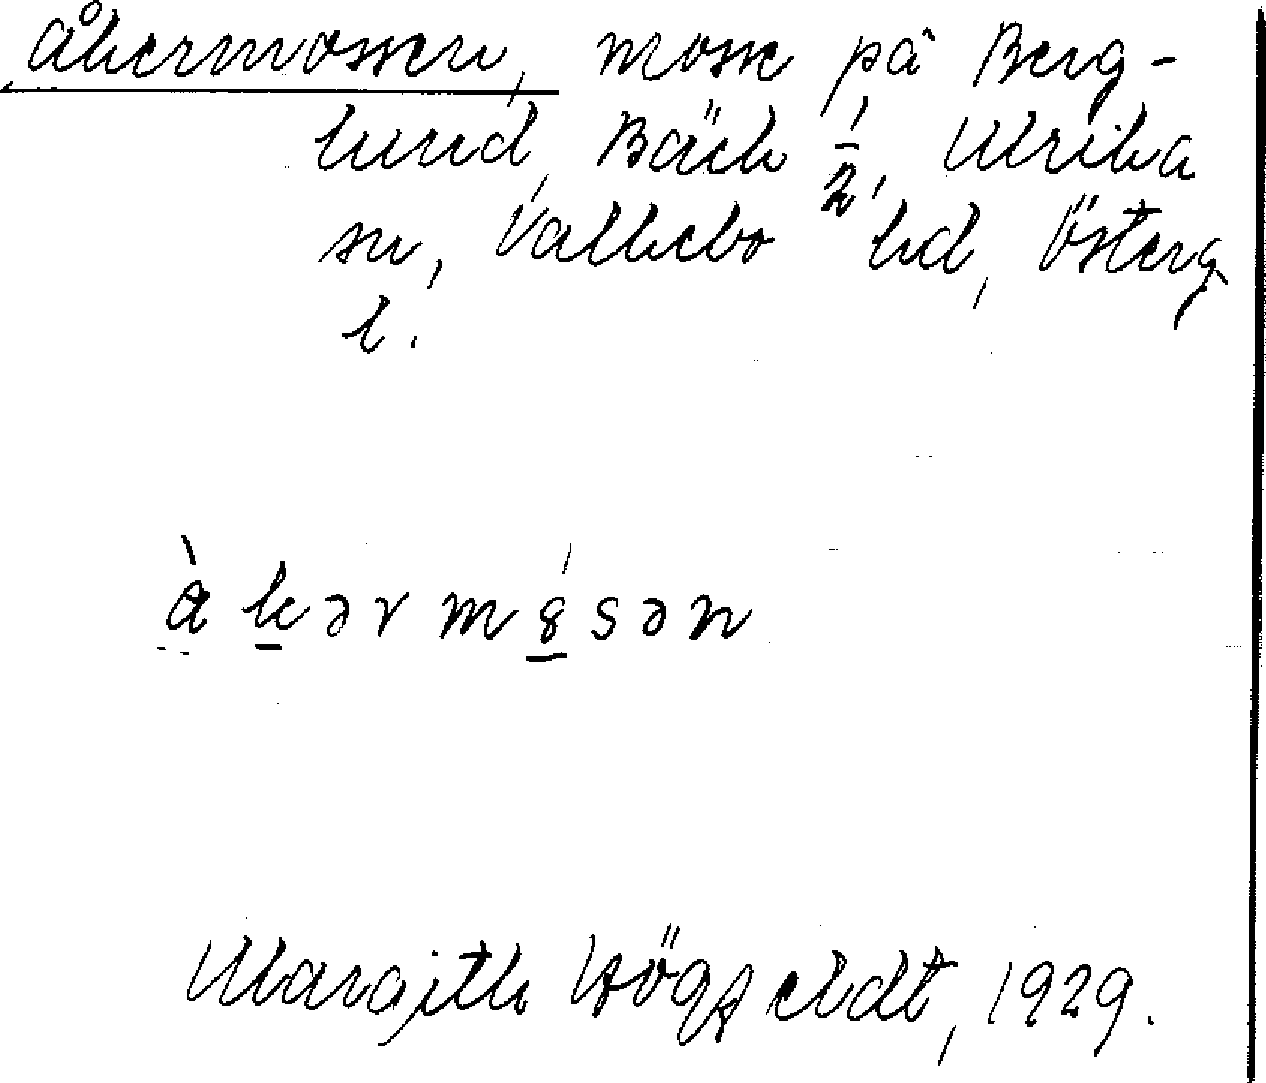 Åkermossen, mosse på Berg-
lund, Bäck 1/2, Ulrika
sn, Valkebo hd, Österg
l.
àkərm8́sən
Margith Högfeldt, 1929.